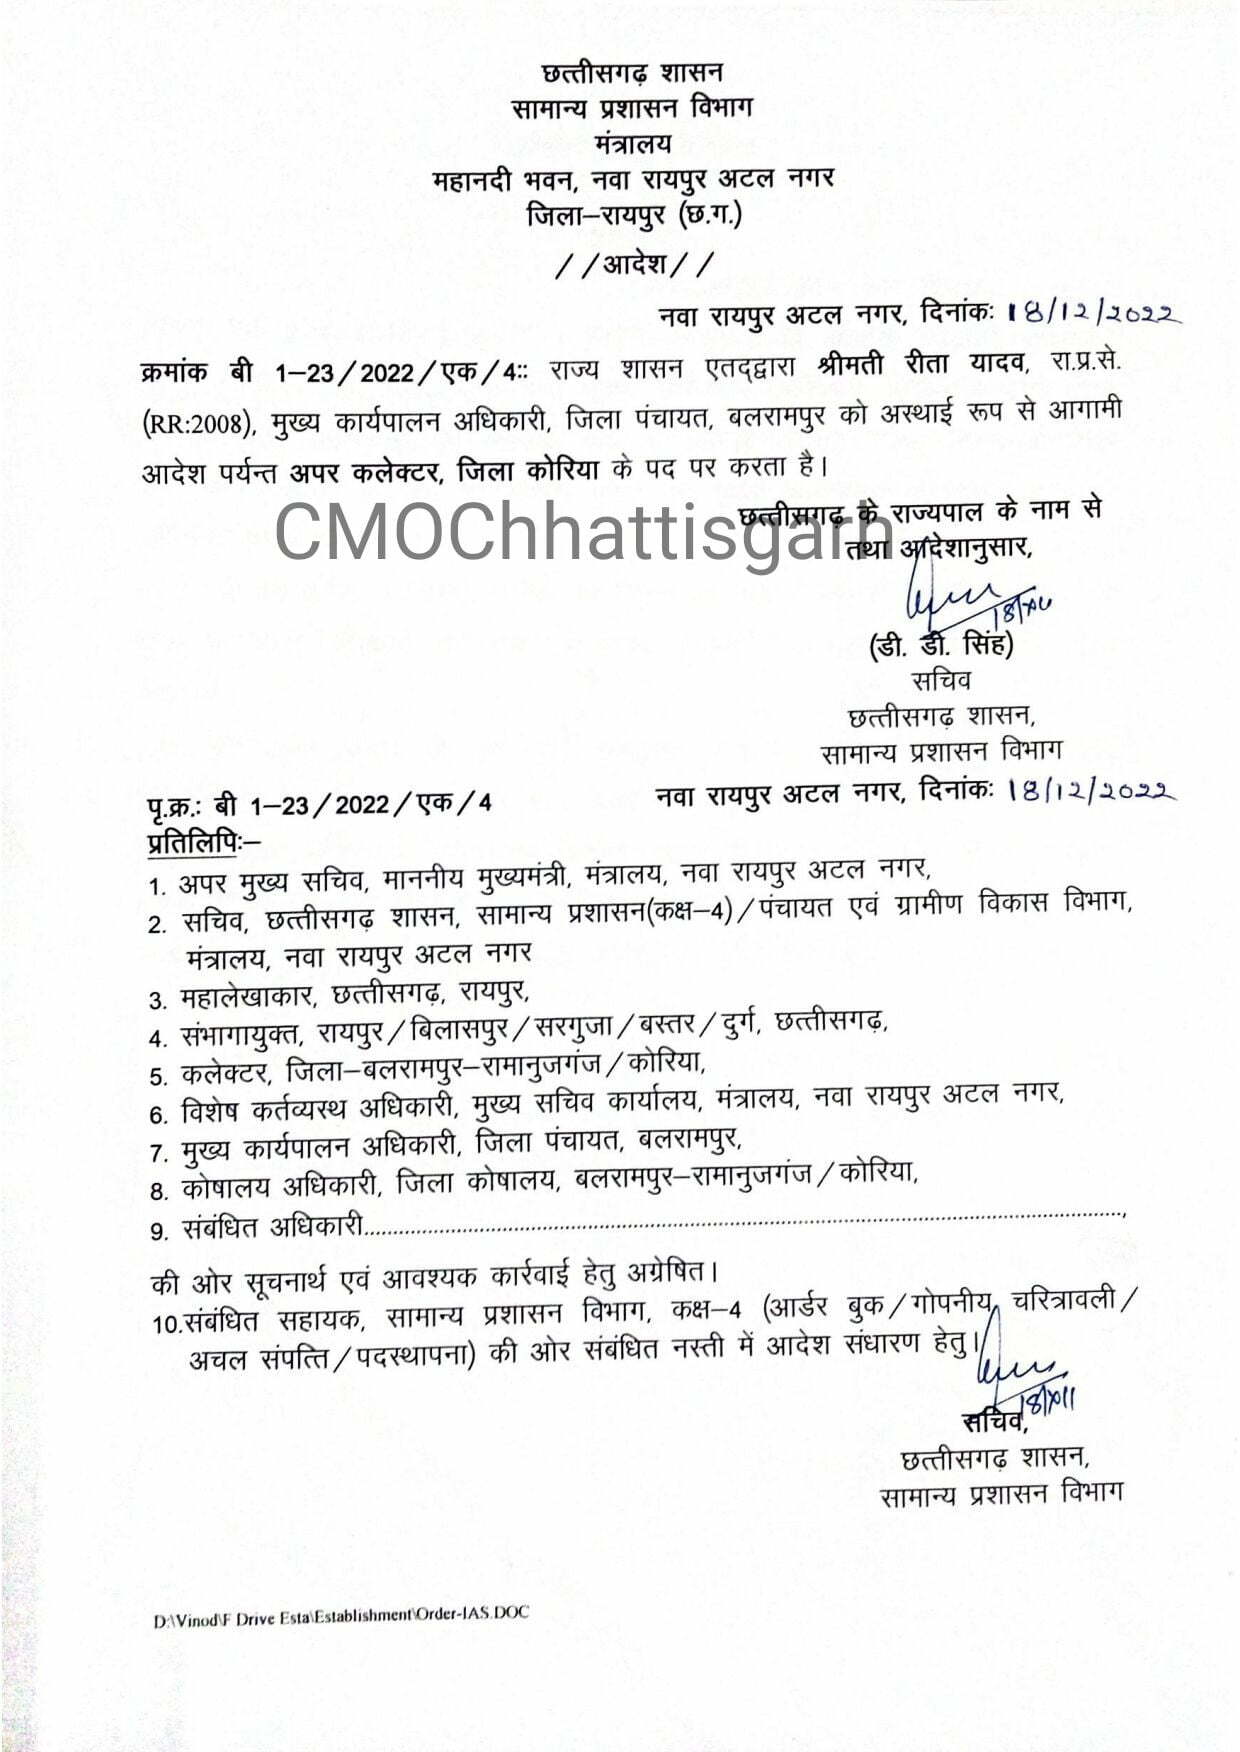 छत्तीसगढ़ शासन
सामान्य प्रशासन विभाग
मंत्रालय
महानदी भवन, नवा रायपुर अटल नगर
जिला–रायपुर (छ.ग.)
//आदेश//
नवा रायपुर अटल नगर, दिनांकः 18/12/2022
क्रमांक बी 1–23/2022/एक/4:: राज्य शासन एतद्द्वारा श्रीमती रीता यादव, रा.प्र.से.
(RR:2008), मुख्य कार्यपालन अधिकारी, जिला पंचायत, बलरामपुर को अस्थाई रूप से आगामी
आदेश पर्यन्त अपर कलेक्टर, जिला कोरिया के पद पर करता है।
CMOChhattisgarh
छत्तीसगढ़ के राज्यपाल के नाम से
तथा आदेशानुसार,
(डी. डी. सिंह)
सचिव
छत्तीसगढ़ शासन,
सामान्य प्रशासन विभाग
पृ.क्र.: बी 1–23/2022/एक/4 नवा रायपुर अटल नगर, दिनांकः 18/12/2022
प्रतिलिपिः–
1. अपर मुख्य सचिव, माननीय मुख्यमंत्री, मंत्रालय, नवा रायपुर अटल नगर,
2. सचिव, छत्तीसगढ़ शासन, सामान्य प्रशासन(कक्ष–4)/पंचायत एवं ग्रामीण विकास विभाग,
मंत्रालय, नवा रायपुर अटल नगर
3. महालेखाकार, छत्तीसगढ़, रायपुर,
4. संभागायुक्त, रायपुर/बिलासपुर/सरगुजा/बस्तर/दुर्ग, छत्तीसगढ़,
5. कलेक्टर, जिला–बलरामपुर–रामानुजगंज/कोरिया,
6. विशेष कर्तव्यस्थ अधिकारी, मुख्य सचिव कार्यालय, मंत्रालय, नवा रायपुर अटल नगर,
7. मुख्य कार्यपालन अधिकारी, जिला पंचायत, बलरामपुर,
8. कोषालय अधिकारी, जिला कोषालय, बलरामपुर–रामानुजगंज/कोरिया,
9. संबंधित अधिकारी..........................................................................................,
की ओर सूचनार्थ एवं आवश्यक कार्रवाई हेतु अग्रेषित।
10.संबंधित सहायक, सामान्य प्रशासन विभाग, कक्ष–4 (आर्डर बुक/गोपनीय चरित्रावली/
अचल संपत्ति/पदस्थापना) की ओर संबंधित नस्ती में आदेश संधारण हेतु।
सचिव,
छत्तीसगढ़ शासन,
सामान्य प्रशासन विभाग
D:\Vinod\F Drive Esta\Establishment\Order-IAS.DOC